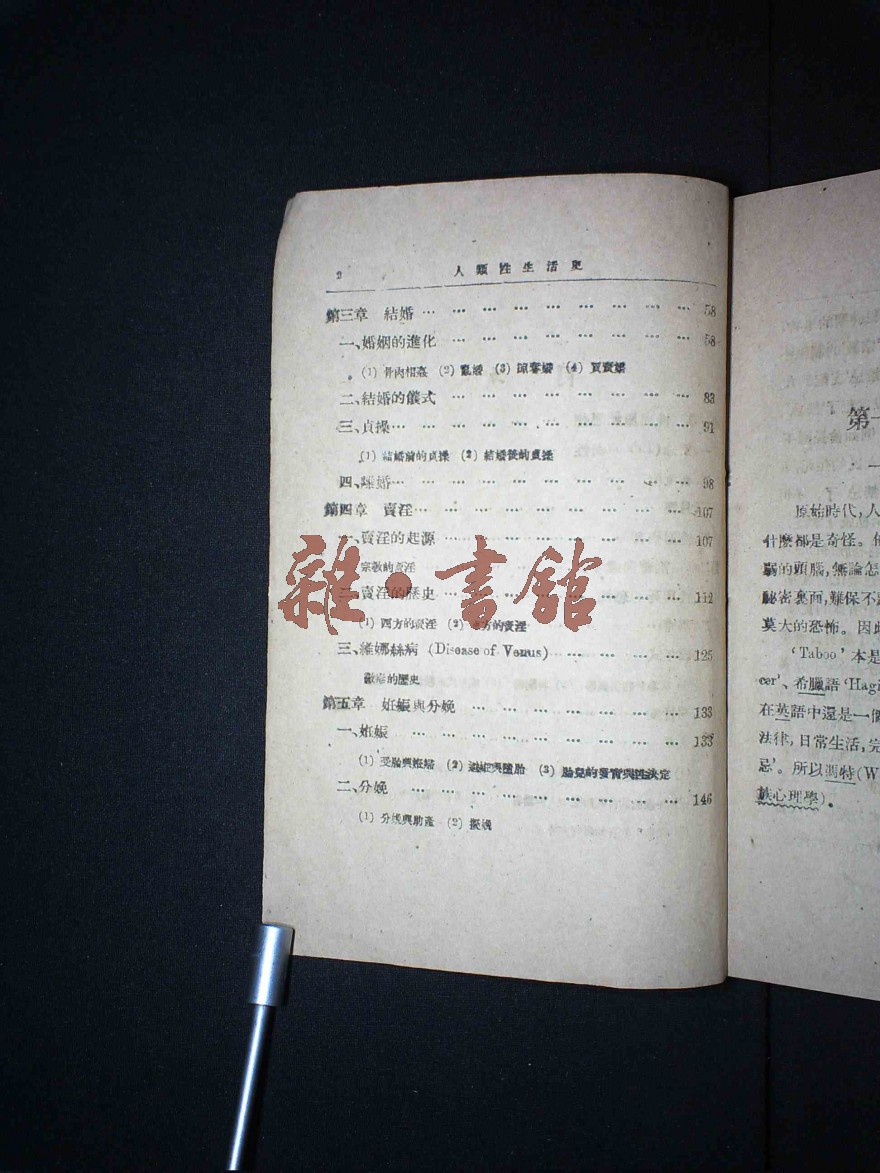 2 人類性生活史
第三章 結婚 … … … … … … … … … 58
一、婚姻的進化 … … … … … … … … 58
(1) 骨肉相姦 (2) 亂婚 (3) 掠奪婚 (4) 買賣婚
二、結婚的儀式 … … … … … … … … 83
三、貞操… … … … … … … … … … 91
(1) 結婚前的貞操 (2) 結婚後的貞操
四、離婚… … … … … … … … … … 98
第四章 賣淫… … … … … … … … … 107
一、賣淫的起源 … … … … … … … … 107
宗教的賣淫
二、賣淫的歷史 … … … … … … … … 112
(1) 西方的賣淫 (2) 方的賣淫
三、維娜絲病 (Disease of Venus) … … … … 125
黴毒的歷史
第五章 姙娠與分娩 … … … … … … … 133
一、姙娠 … … … … … … … … … 133
(1) 受胎與姙娠 (2) 與墮胎 (3) 胎兒的發育與性決定
二、分娩 … … … … … … … … … 146
(1) 分娩與助產 (2) 擬娩
雜·書館
第一
原始時代，人
什麽都是奇怪。
窮的頭腦，無論怎
祕密裏面，難保不
莫大的恐怖。因此
'Taboo' 本是
cer'、希臘語 'Hagi
在英語中還是一個
法律，日常生活，完
忌'。所以馮特(W
族心理學)。